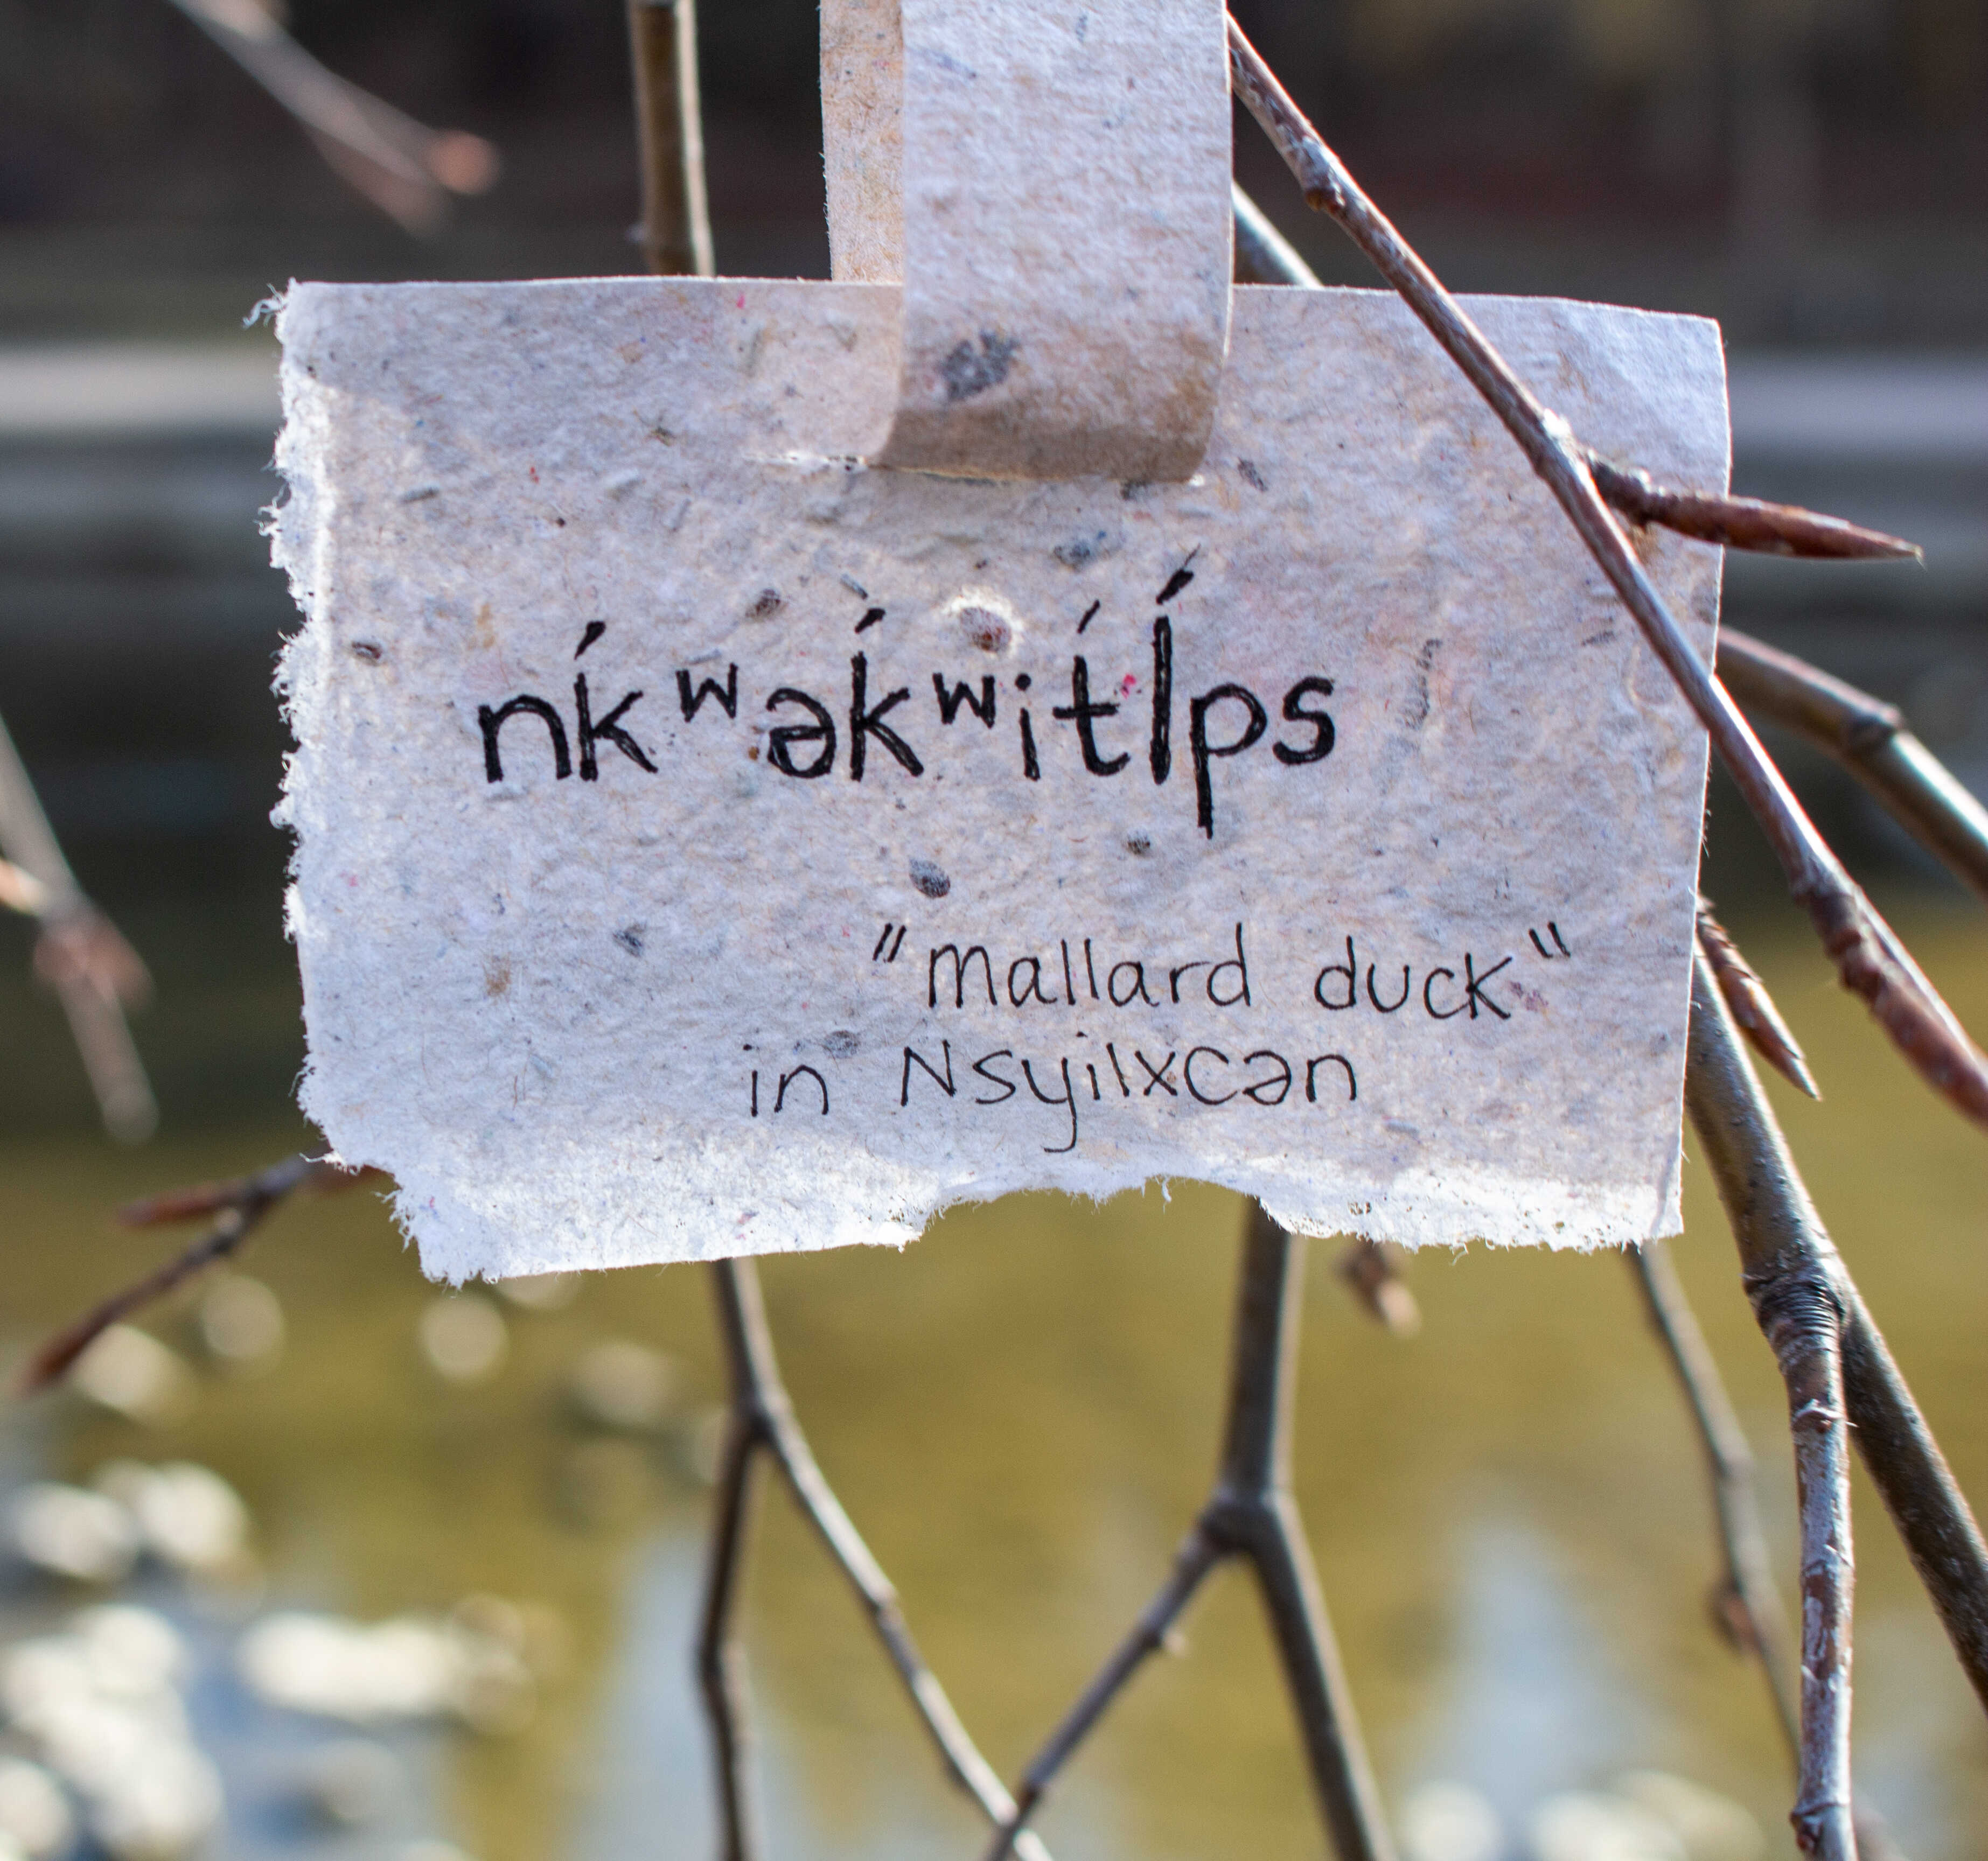 nk̓ʷək̓ʷit̓l̓ps
"Mallard duck"
in Nsyilxcən